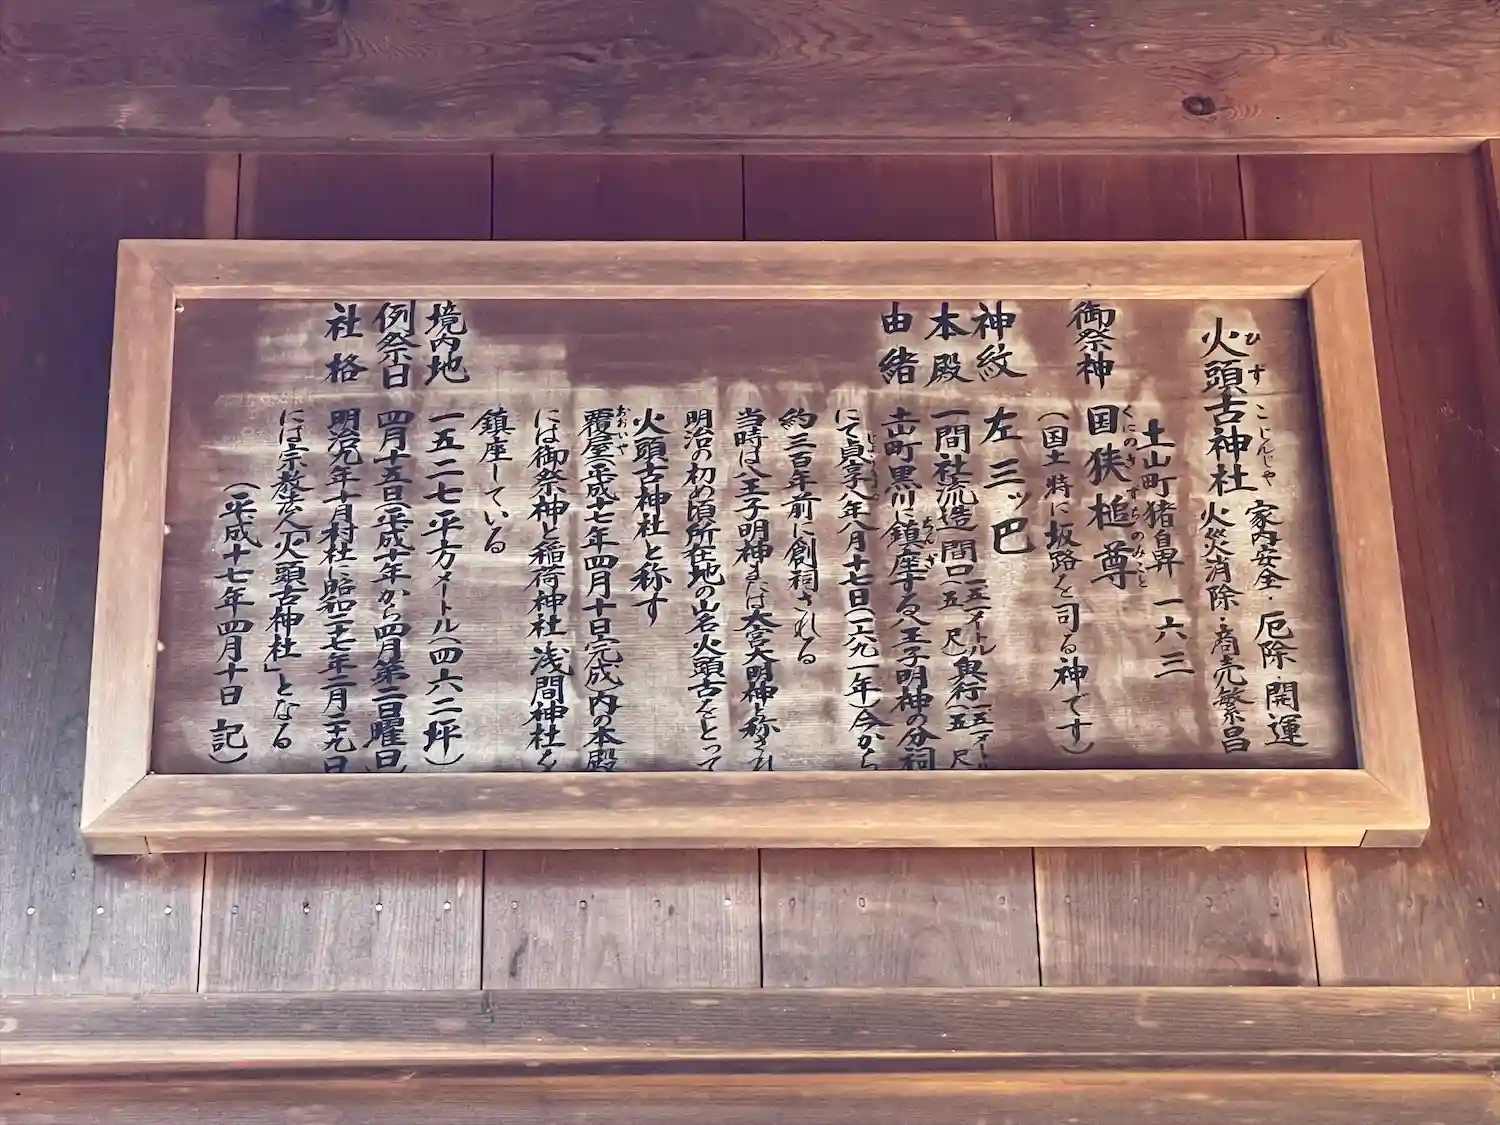 火頭古神社 家内安全・厄除・開運
ひずこじんじゃ
火災消除・商売繁昌
土山町猪鼻 一六三
御祭神 国狭槌尊
くにのさずちのみこと
(国土特に坂路を司る神です)
神紋 左三ッ巴
本殿 一間社流造 間口一.五一メートル(五尺)奥行一.五一メートル(五尺)
由緒 土山町黒川に鎮座する八王子明神の分祠
ちんざ
にて貞享八年八月十七日(一六九一年)今から
じょうきょう
約三百年前に創祠される
当時は八王子明神または太宮大明神と称され
明治の初め頃所在地の山名火頭古をとって
火頭古神社と称す
覆屋(平成十七年四月十日完成)内の本殿
おおいや
には御祭神と稲荷神社・浅間神社を
鎮座している
境内地 一五二七平方メートル(四六二坪)
例祭日 四月十五日(平成十年から四月第二日曜日)
社格 明治九年十月村社に昭和二十七年二月二十九日
には宗教法人「火頭古神社」となる
(平成十七年四月十日 記)